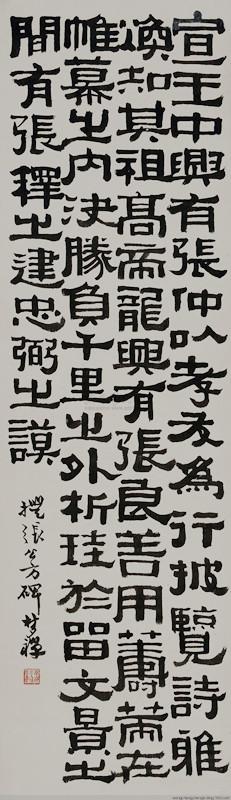 宣王中興有張仲以孝友為行披覽詩雅
渙知其祖高帝龍興有張良善用籌策在
帷幕之內決勝負千里之外析珪於留文景之
間有張釋之建忠弼之謨
張公方碑